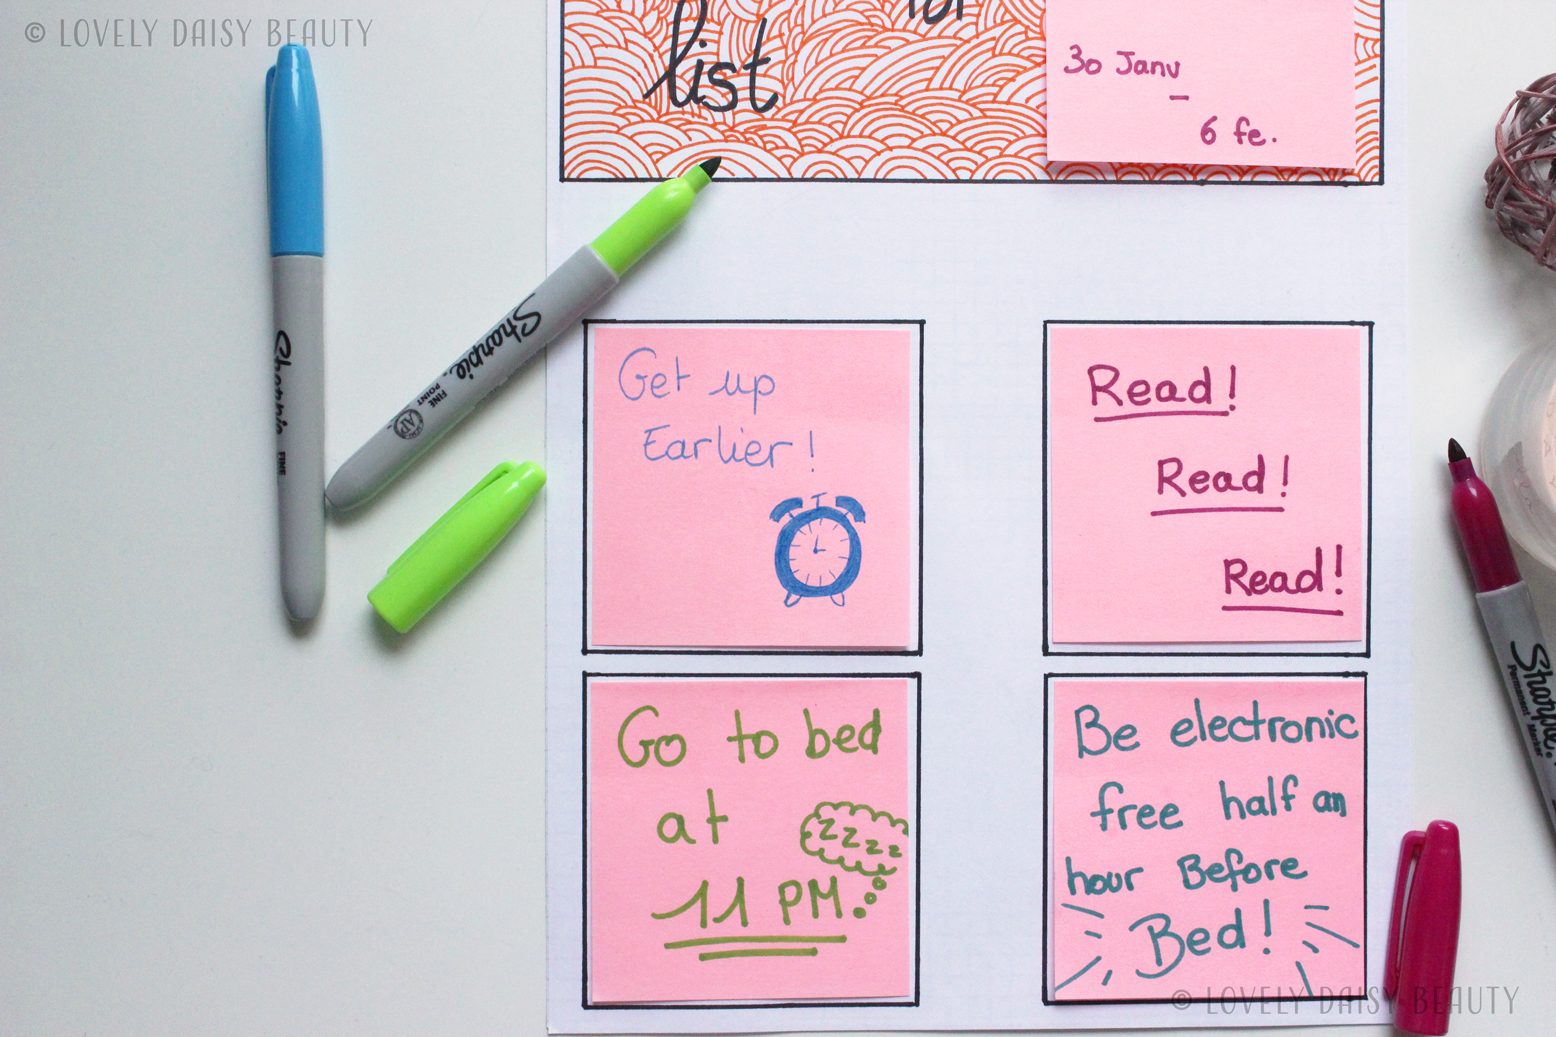 © LOVELY DAISY BEAUTY
list
30 Janv
-
6 fe.
Sharpie
FINE
Sharpie.
FINE
POINT
AP
Get up
Earlier!
Read!
Read!
Read!
Go to bed
at
zzzz
11 PM
Be electronic
free half an
hour Before
Bed!
Sharpie.
Permanent Marker
© LOVELY DAISY BEAUTY